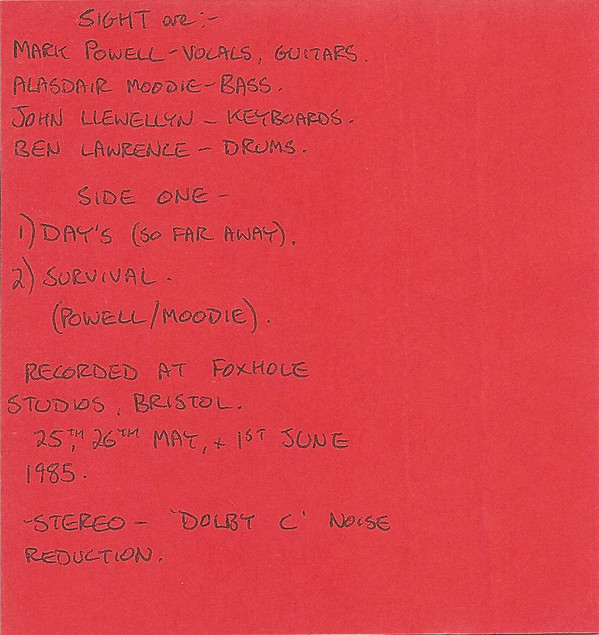 SIGHT are:-
MARK POWELL-VOCALS, GUITARS.
ALASDAIR MOODIE-BASS.
JOHN LLEWELLYN - KEYBOARDS.
BEN LAWRENCE - DRUMS.
SIDE ONE -
1) DAY'S (SO FAR AWAY).
2) SURVIVAL.
(POWELL/MOODIE).
RECORDED AT FOXHOLE
STUDIOS, BRISTOL.
25TH, 26TH MAY, + 1ST JUNE
1985.
-STEREO - 'DOLBY C' NOISE
REDUCTION.